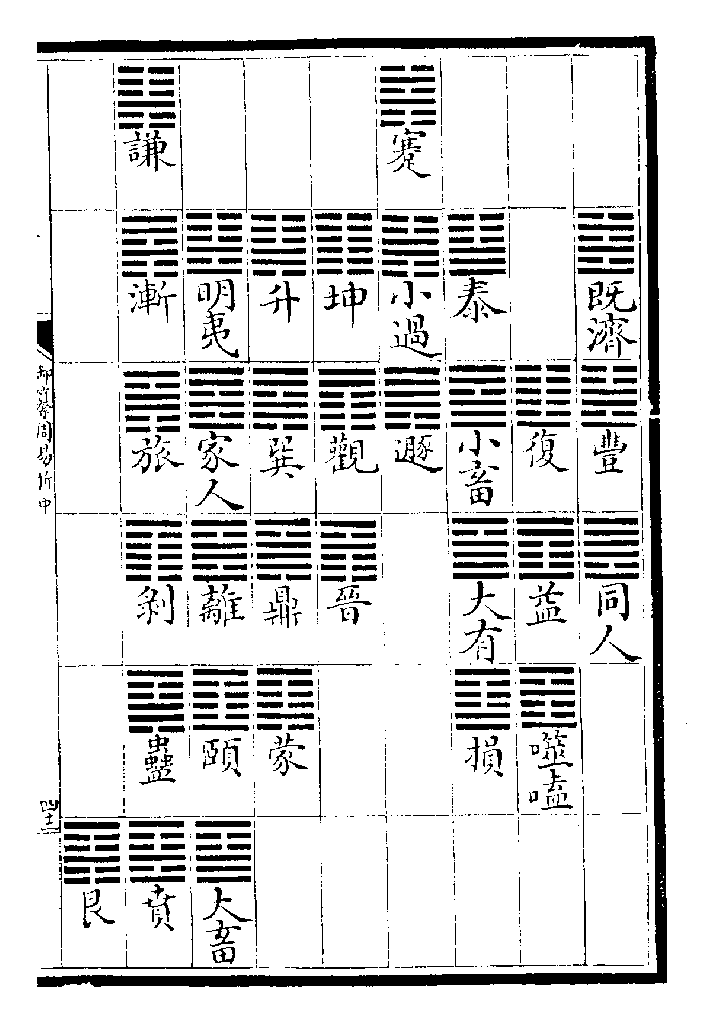 既濟 豐 同人
復 益 噬嗑
泰 小畜 大有 損
蹇 小過 遯
坤 觀 晉
升 巽 鼎 蒙
明夷 家人 離 頤 大畜
謙 漸 旅 剝 蠱 賁
艮
御纂周易折中